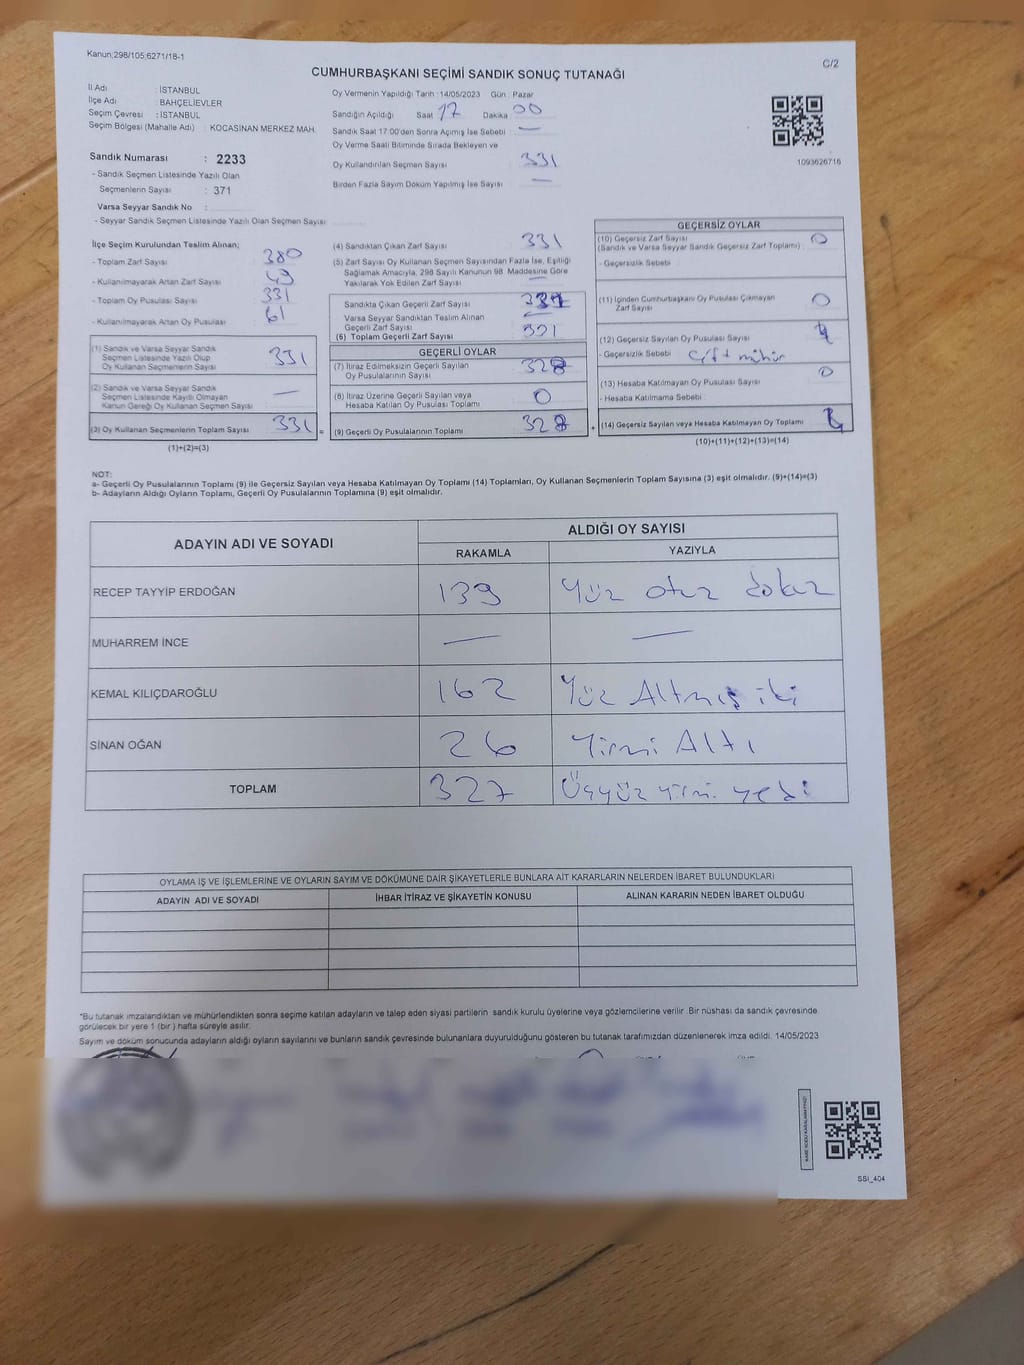 Kanun;298/105;6271/18-1
C/2
CUMHURBAŞKANI SEÇİMİ SANDIK SONUÇ TUTANAĞI
İl Adı : İSTANBUL
İlçe Adı : BAHÇELİEVLER
Seçim Çevresi : İSTANBUL
Seçim Bölgesi (Mahalle Adı) : KOCASİNAN MERKEZ MAH.
Sandık Numarası : 2233
- Sandık Seçmen Listesinde Yazılı Olan
Seçmenlerin Sayısı : 371
Varsa Seyyar Sandık No :
- Seyyar Sandık Seçmen Listesinde Yazılı Olan Seçmen Sayısı
Oy Vermenin Yapıldığı Tarih :14/05/2023 Gün : Pazar
Sandığın Açıldığı Saat 17 Dakika 00
Sandık Saat 17:00'den Sonra Açımış İse Sebebi : —
Oy Verme Saati Bitiminde Sırada Bekleyen ve
Oy Kullandırılan Seçmen Sayısı 331
Birden Fazla Sayım Döküm Yapılmış İse Sayısı —
1093626716
İlçe Seçim Kurulundan Teslim Alınan;
- Toplam Zarf Sayısı 380
- Kullanılmayarak Artan Zarf Sayısı 49
- Toplam Oy Pusulası Sayısı 331
- Kullanılmayarak Artan Oy Pusulası 61
(1) Sandık ve Varsa Seyyar Sandık
Seçmen Listesinde Yazılı Olup
Oy Kullanan Seçmenlerin Sayısı 331
(2) Sandık ve Varsa Seyyar Sandık
Seçmen Listesinde Kayıtlı Olmayan
Kanun Gereği Oy Kullanan Seçmen Sayısı —
(3) Oy Kullanan Seçmenlerin Toplam Sayısı 331 =
(1)+(2)=(3)
(4) Sandıktan Çıkan Zarf Sayısı 331
(5) Zarf Sayısı Oy Kullanan Seçmen Sayısından Fazla İse, Eşitliği
Sağlamak Amacıyla, 298 Sayılı Kanunun 98. Maddesine Göre
Yakılarak Yok Edilen Zarf Sayısı —
Sandıkta Çıkan Geçerli Zarf Sayısı
Varsa Seyyar Sandıktan Teslim Alınan
Geçerli Zarf Sayısı —
(6) Toplam Geçerli Zarf Sayısı 331
GEÇERLİ OYLAR
(7) İtiraz Edilmeksizin Geçerli Sayılan
Oy Pusulalarının Sayısı
(8) İtiraz Üzerine Geçerli Sayılan veya
Hesaba Katılan Oy Pusulası Toplamı 0
(9) Geçerli Oy Pusulalarının Toplamı +
GEÇERSİZ OYLAR
(10) Geçersiz Zarf Sayısı
(Sandık ve Varsa Seyyar Sandık Geçersiz Zarf Toplamı) : 0
- Geçersizlik Sebebi
(11) İçinden Cumhurbaşkanı Oy Pusulası Çıkmayan
Zarf Sayısı 0
(12) Geçersiz Sayılan Oy Pusulası Sayısı 4
- Geçersizlik Sebebi Çift mühür
(13) Hesaba Katılmayan Oy Pusulası Sayısı 0
- Hesaba Katılmama Sebebi
(14) Geçersiz Sayılan veya Hesaba Katılmayan Oy Toplamı
(10)+(11)+(12)+(13)=(14)
NOT:
a- Geçerli Oy Pusulalarının Toplamı (9) ile Geçersiz Sayılan veya Hesaba Katılmayan Oy Toplamı (14) Toplamları, Oy Kullanan Seçmenlerin Toplam Sayısına (3) eşit olmalıdır. (9)+(14)=(3)
b- Adayların Aldığı Oyların Toplamı, Geçerli Oy Pusulalarının Toplamına (9) eşit olmalıdır.
ADAYIN ADI VE SOYADI ALDIĞI OY SAYISI
RAKAMLA YAZIYLA
RECEP TAYYİP ERDOĞAN 139 Yüz otuz dokuz
MUHARREM İNCE — —
KEMAL KILIÇDAROĞLU 162 Yüz Altmış iki
SİNAN OĞAN 26 Yirmi Altı
TOPLAM 327 Üçyüz yirmi yedi
OYLAMA İŞ VE İŞLEMLERİNE VE OYLARIN SAYIM VE DÖKÜMÜNE DAİR ŞİKAYETLERLE BUNLARA AİT KARARLARIN NELERDEN İBARET BULUNDUKLARI
ADAYIN ADI VE SOYADI İHBAR İTİRAZ VE ŞİKAYETİN KONUSU ALINAN KARARIN NEDEN İBARET OLDUĞU
*Bu tutanak imzalandıktan ve mühürlendikten sonra seçime katılan adayların ve talep eden siyasi partilerin sandık kurulu üyelerine veya gözlemcilerine verilir. Bir nüshası da sandık çevresinde
görülecek bir yere 1 (bir) hafta süreyle asılır.
Sayım ve döküm sonucunda adayların aldığı oyların sayılarını ve bunların sandık çevresinde bulunanlara duyurulduğunu gösteren bu tutanak tarafımızdan düzenlenerek imza edildi. 14/05/2023
KARE KODU KARALAMAYINIZ!
SSI_404